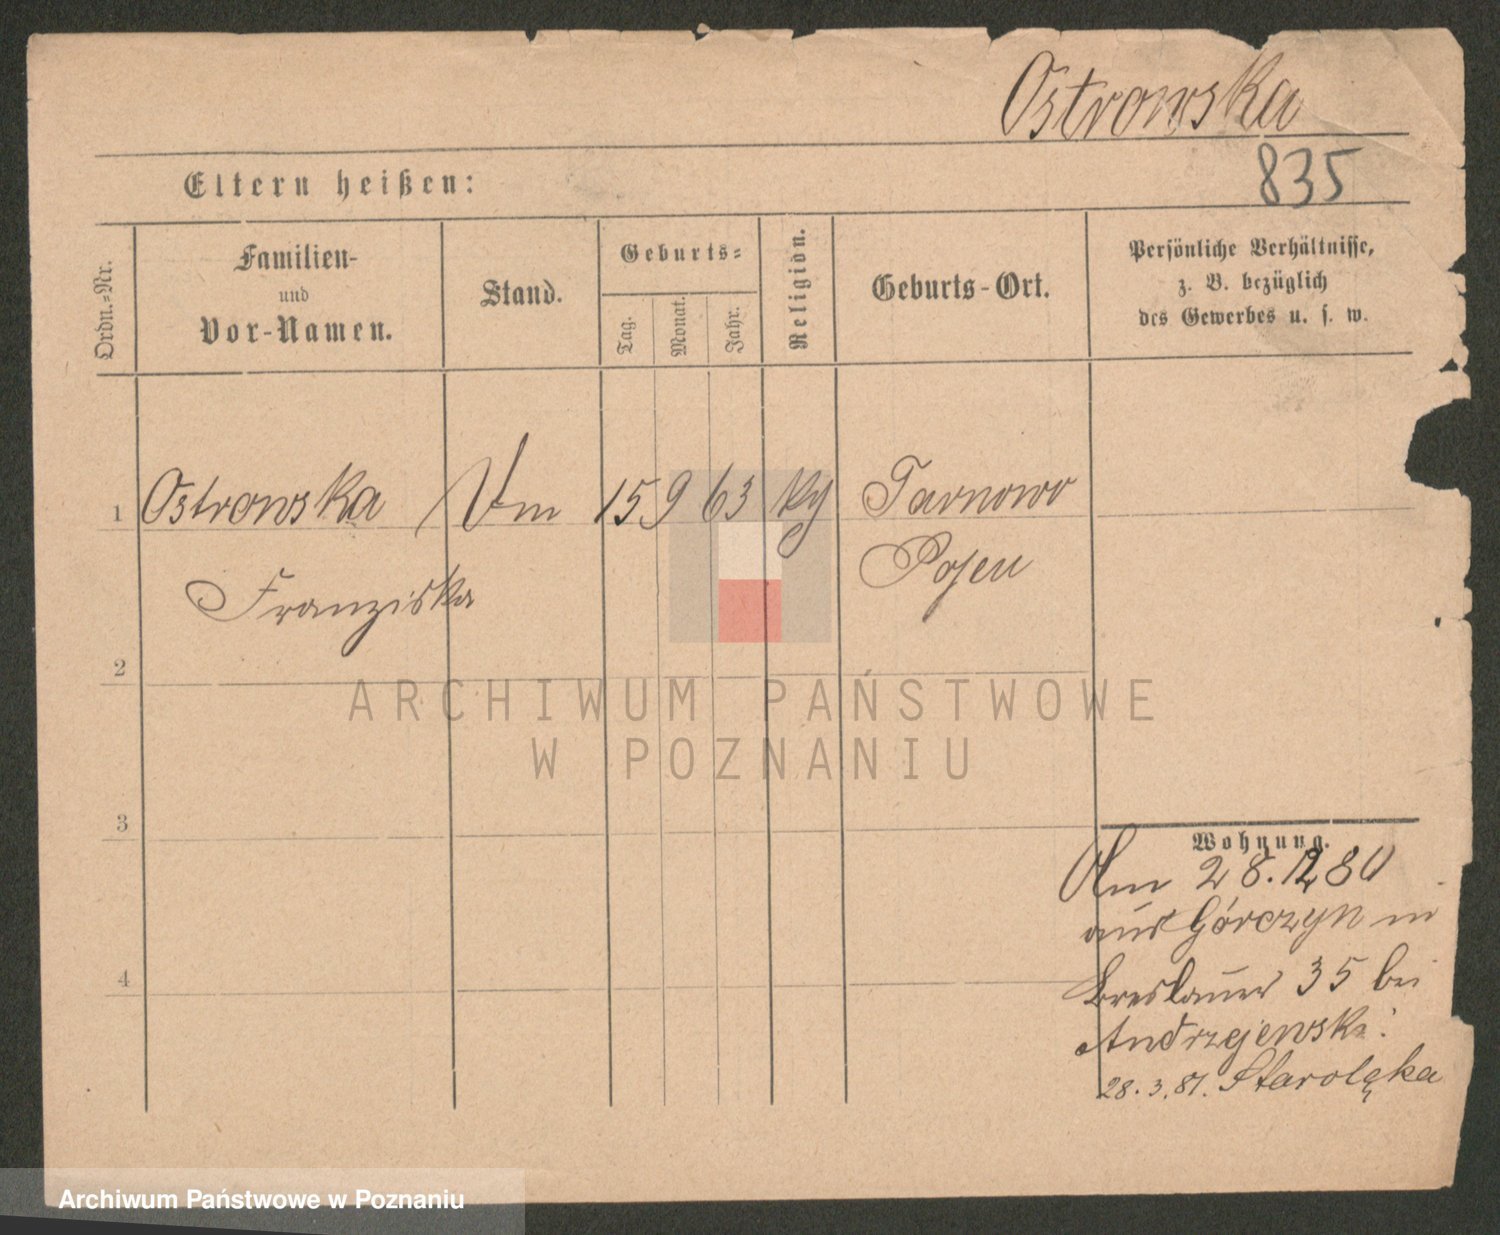 Ostrowska
835
Eltern heißen:
Ordn.-Nr.
Familien-
und
Vor-Namen.
Stand.
Geburts-
Tag.
Monat.
Jahr.
Religion.
Geburts-Ort.
Persönliche Verhältnisse,
z. B. bezüglich
des Gewerbes u. s. w.
1 Ostrowska 15 9 63 Tarnowo
Franziska Posen
2
3
4
Wohnung.
28.12 80
aus Górczyn in
Breslauer 35 bei
Andrzejewski
28.3.81. Starolęka
ARCHIWUM PAŃSTWOWE
W POZNANIU
Archiwum Państwowe w Poznaniu